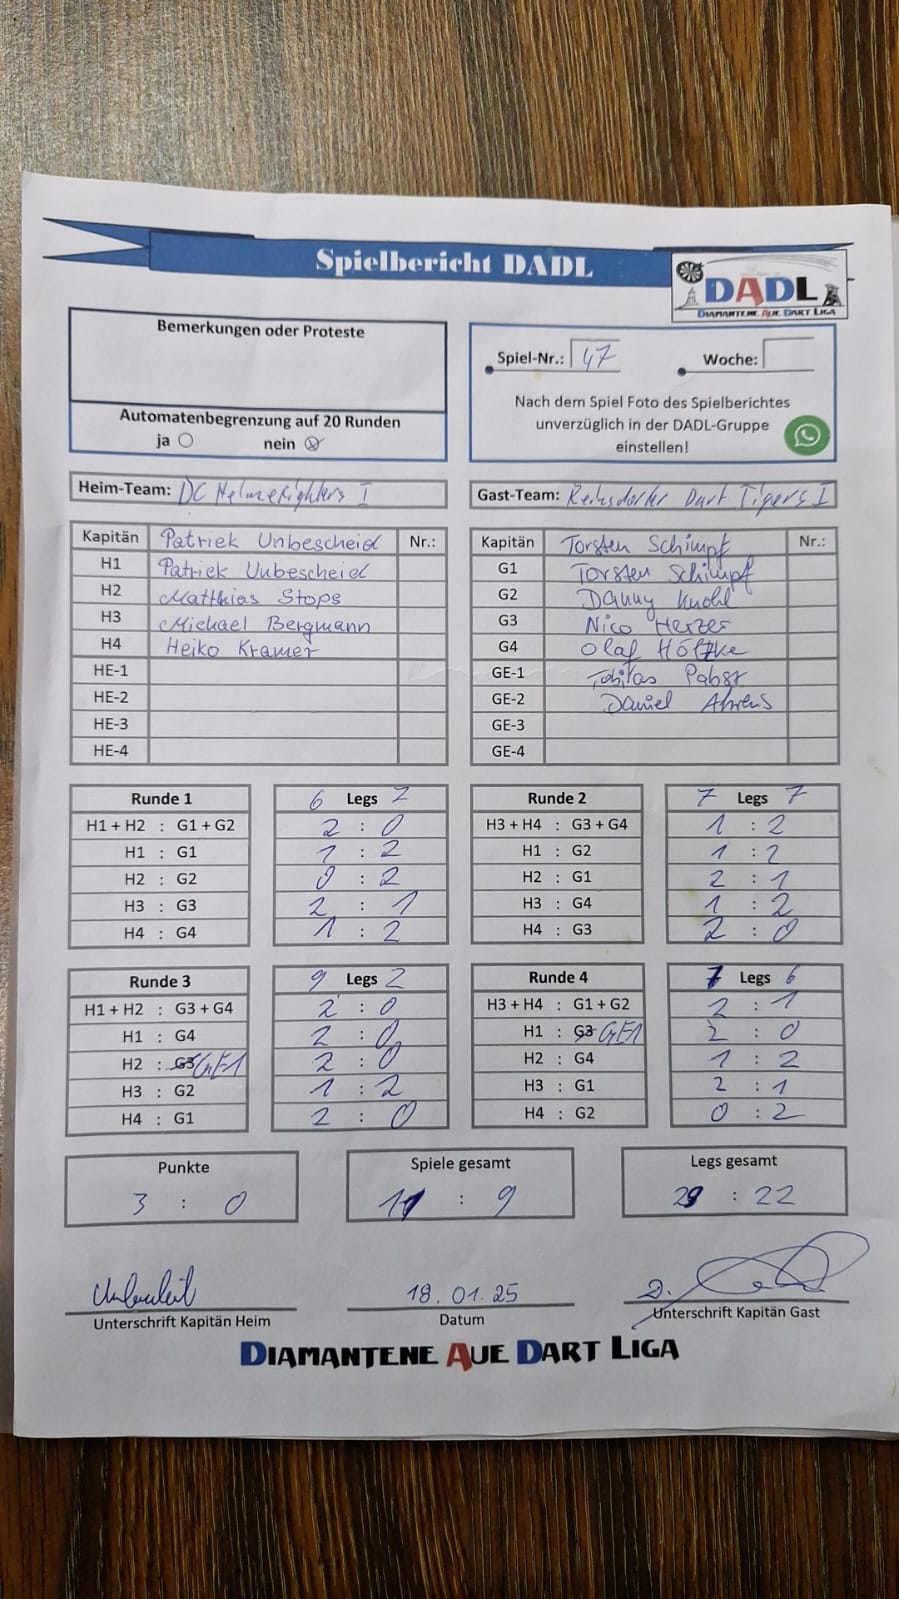 Spielbericht DADL
DADL
DIAMANTENE AUE DART LIGA
Bemerkungen oder Proteste
Automatenbegrenzung auf 20 Runden
ja nein
Spiel-Nr.: 47 Woche:
Nach dem Spiel Foto des Spielberichtes
unverzüglich in der DADL-Gruppe
einstellen!
Heim-Team: DC Helmefighters I
Gast-Team: Reinsdorfer Dart Tigers I
Kapitän Patriek Unbescheid Nr.:
H1 Patriek Unbescheid
H2 Matthias Stops
H3 Michael Bergmann
H4 Heiko Kramer
HE-1
HE-2
HE-3
HE-4
Kapitän Torsten Schimpf Nr.:
G1 Torsten Schimpf
G2 Danny Knohl
G3 Nico Herzer
G4 Olaf Höltke
GE-1 Tobias Pabst
GE-2 Daniel Ahrens
GE-3
GE-4
Runde 1 6 Legs 7
H1 + H2 : G1 + G2 2 : 0
H1 : G1 1 : 2
H2 : G2 0 : 2
H3 : G3 2 : 1
H4 : G4 1 : 2
Runde 2 7 Legs 7
H3 + H4 : G3 + G4 1 : 2
H1 : G2 1 : 2
H2 : G1 2 : 1
H3 : G4 1 : 2
H4 : G3 2 : 0
Runde 3 9 Legs 2
H1 + H2 : G3 + G4 2 : 0
H1 : G4 2 : 0
H2 : G3 GE1 2 : 0
H3 : G2 1 : 2
H4 : G1 2 : 0
Runde 4 7 Legs 6
H3 + H4 : G1 + G2 2 : 1
H1 : G3 GE1 2 : 0
H2 : G4 1 : 2
H3 : G1 2 : 1
H4 : G2 0 : 2
Punkte
3 : 0
Spiele gesamt
11 : 9
Legs gesamt
29 : 22
Unbescheid
18.01.25
Unterschrift Kapitän Heim
Datum
Unterschrift Kapitän Gast
DIAMANTENE AUE DART LIGA